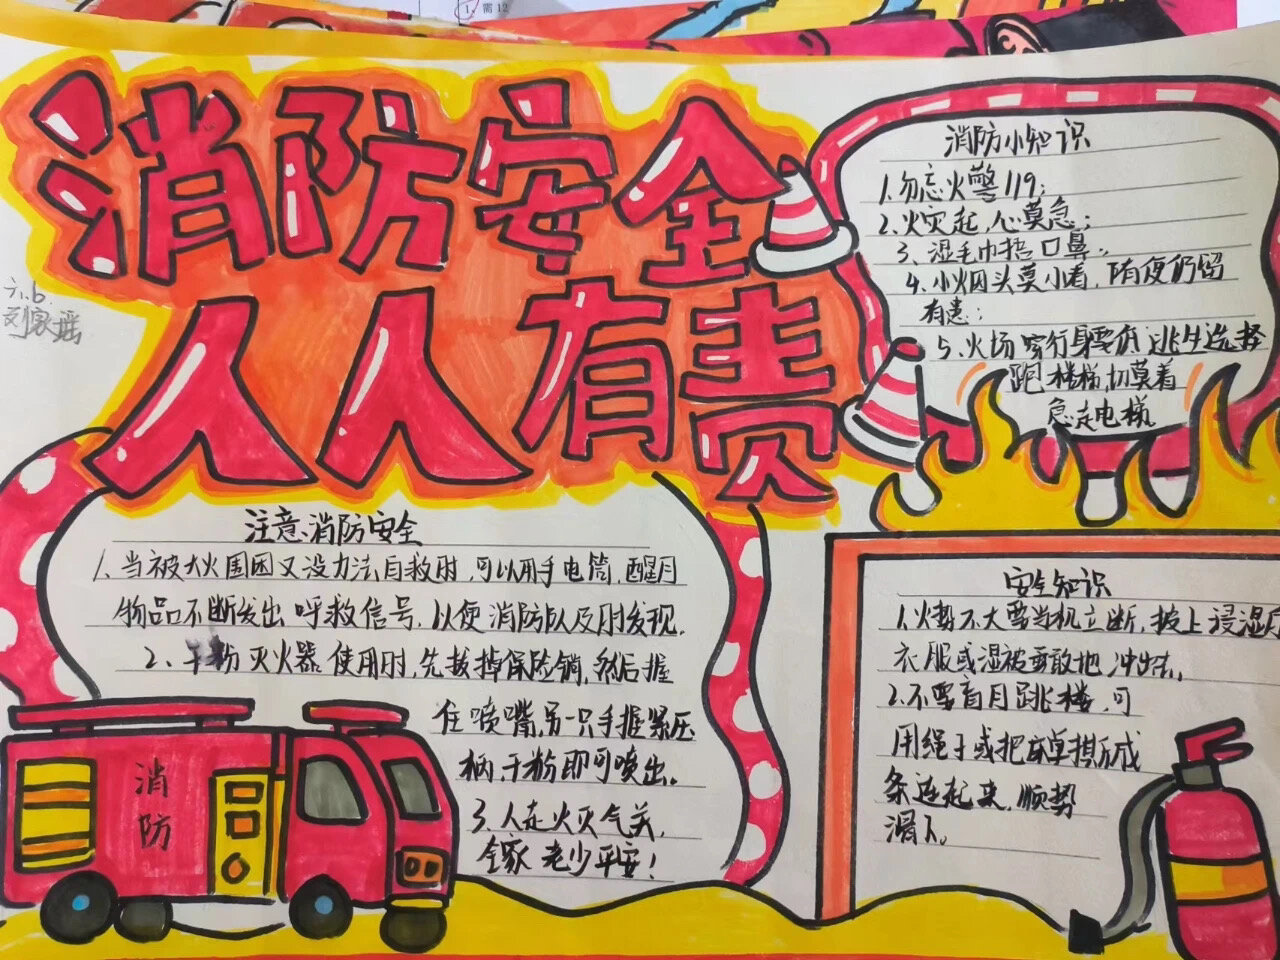 1. 需12
消防安全
人人有责
六.6.
刘家瑶
消防小知识
1.勿忘火警119;
2.火灾起,心莫急;
3、湿毛巾捂口鼻;
4.小烟头莫小看,随便仍留
有患;
5.火场穿行身要低逃生选择
跑楼梯,切莫着
急走电梯
注意消防安全
1、当被大火围困又没力法自救时,可以用手电筒,醒目
物品不断发出呼救信号.以便消防队及时发现.
2、干粉灭火器使用时,先拔掉保险销,然后握
住喷嘴,另一只手握紧压
柄,干粉即可喷出。
3.人走火灭气关,
全家老少平安!
安全知识
1.火势不大要当机立断,披上浸湿
衣服或湿被勇敢地冲出去,
2.不要盲目跳楼,可
用绳子或把床单撕成
条连起来,顺势
滑下。
消
防